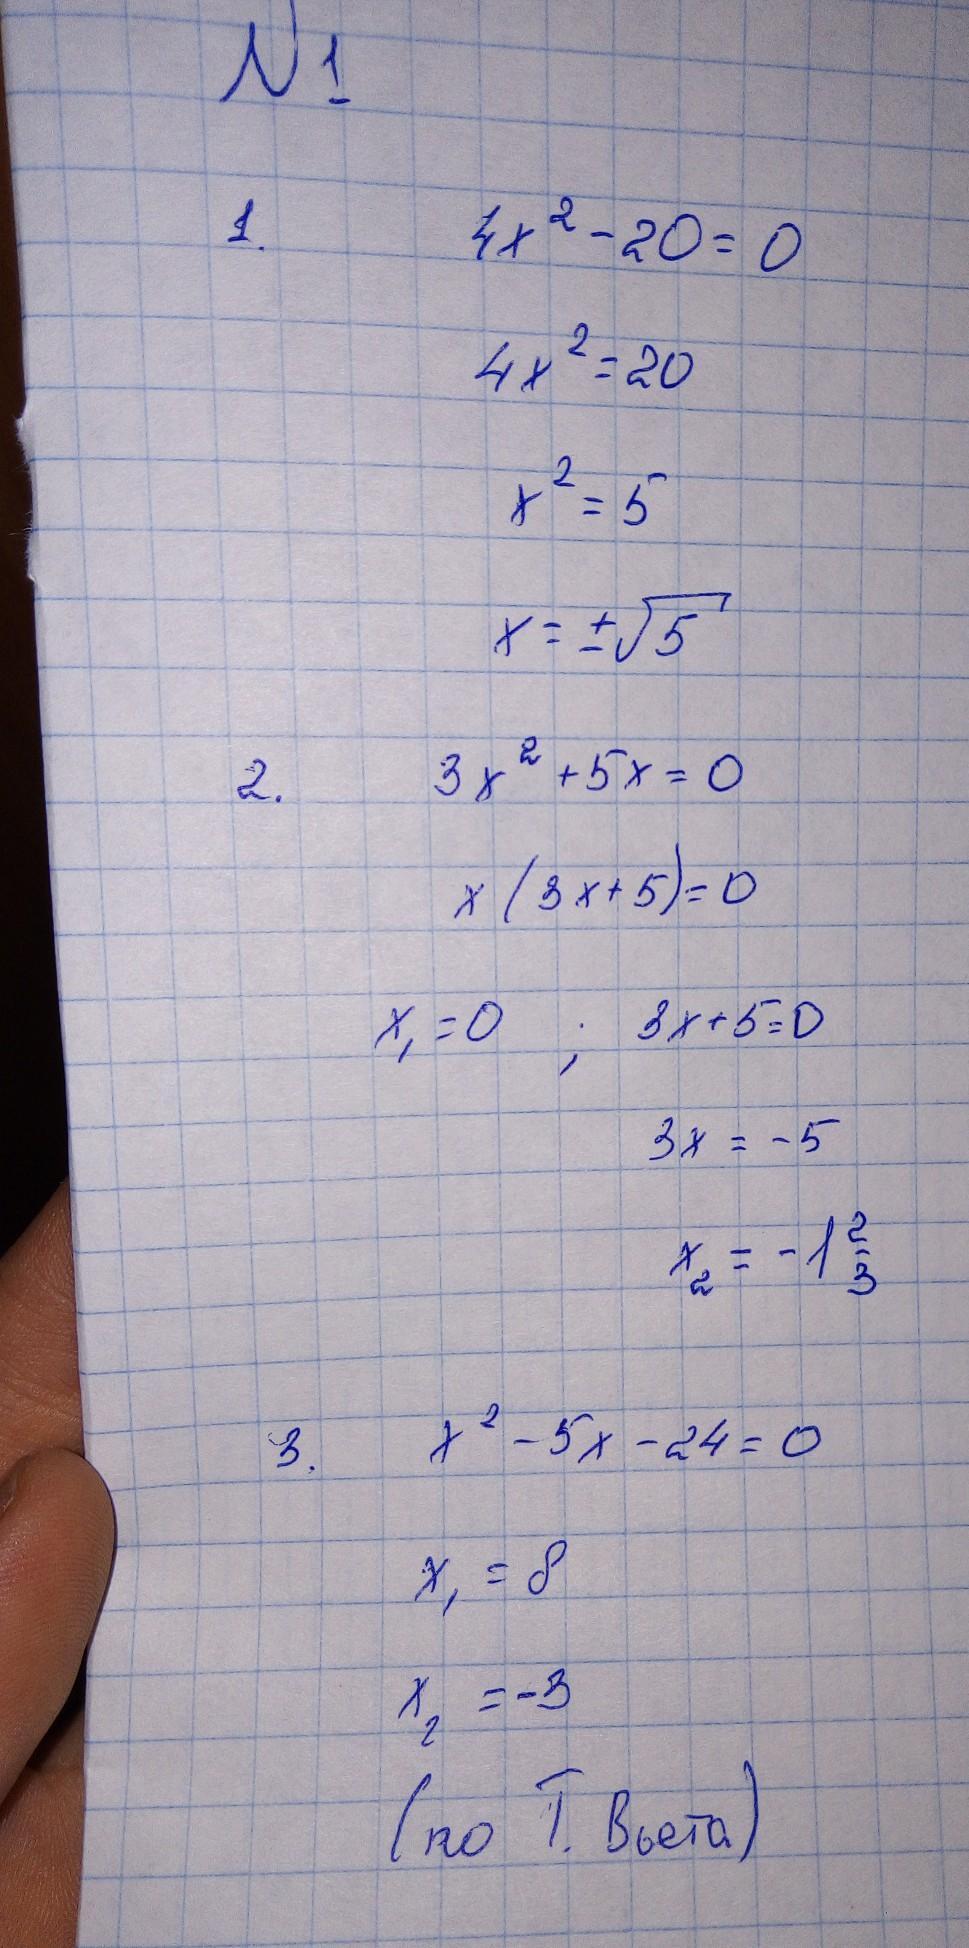 N 1
1. 4x² - 20 = 0
4x² = 20
x² = 5
x = ±√5
2. 3x² + 5x = 0
x (3x + 5) = 0
x₁ = 0 ; 3x + 5 = 0
3x = -5
x₂ = -1 2/3
3. x² - 5x - 24 = 0
x₁ = 8
x₂ = -3
(по Т. Виета)